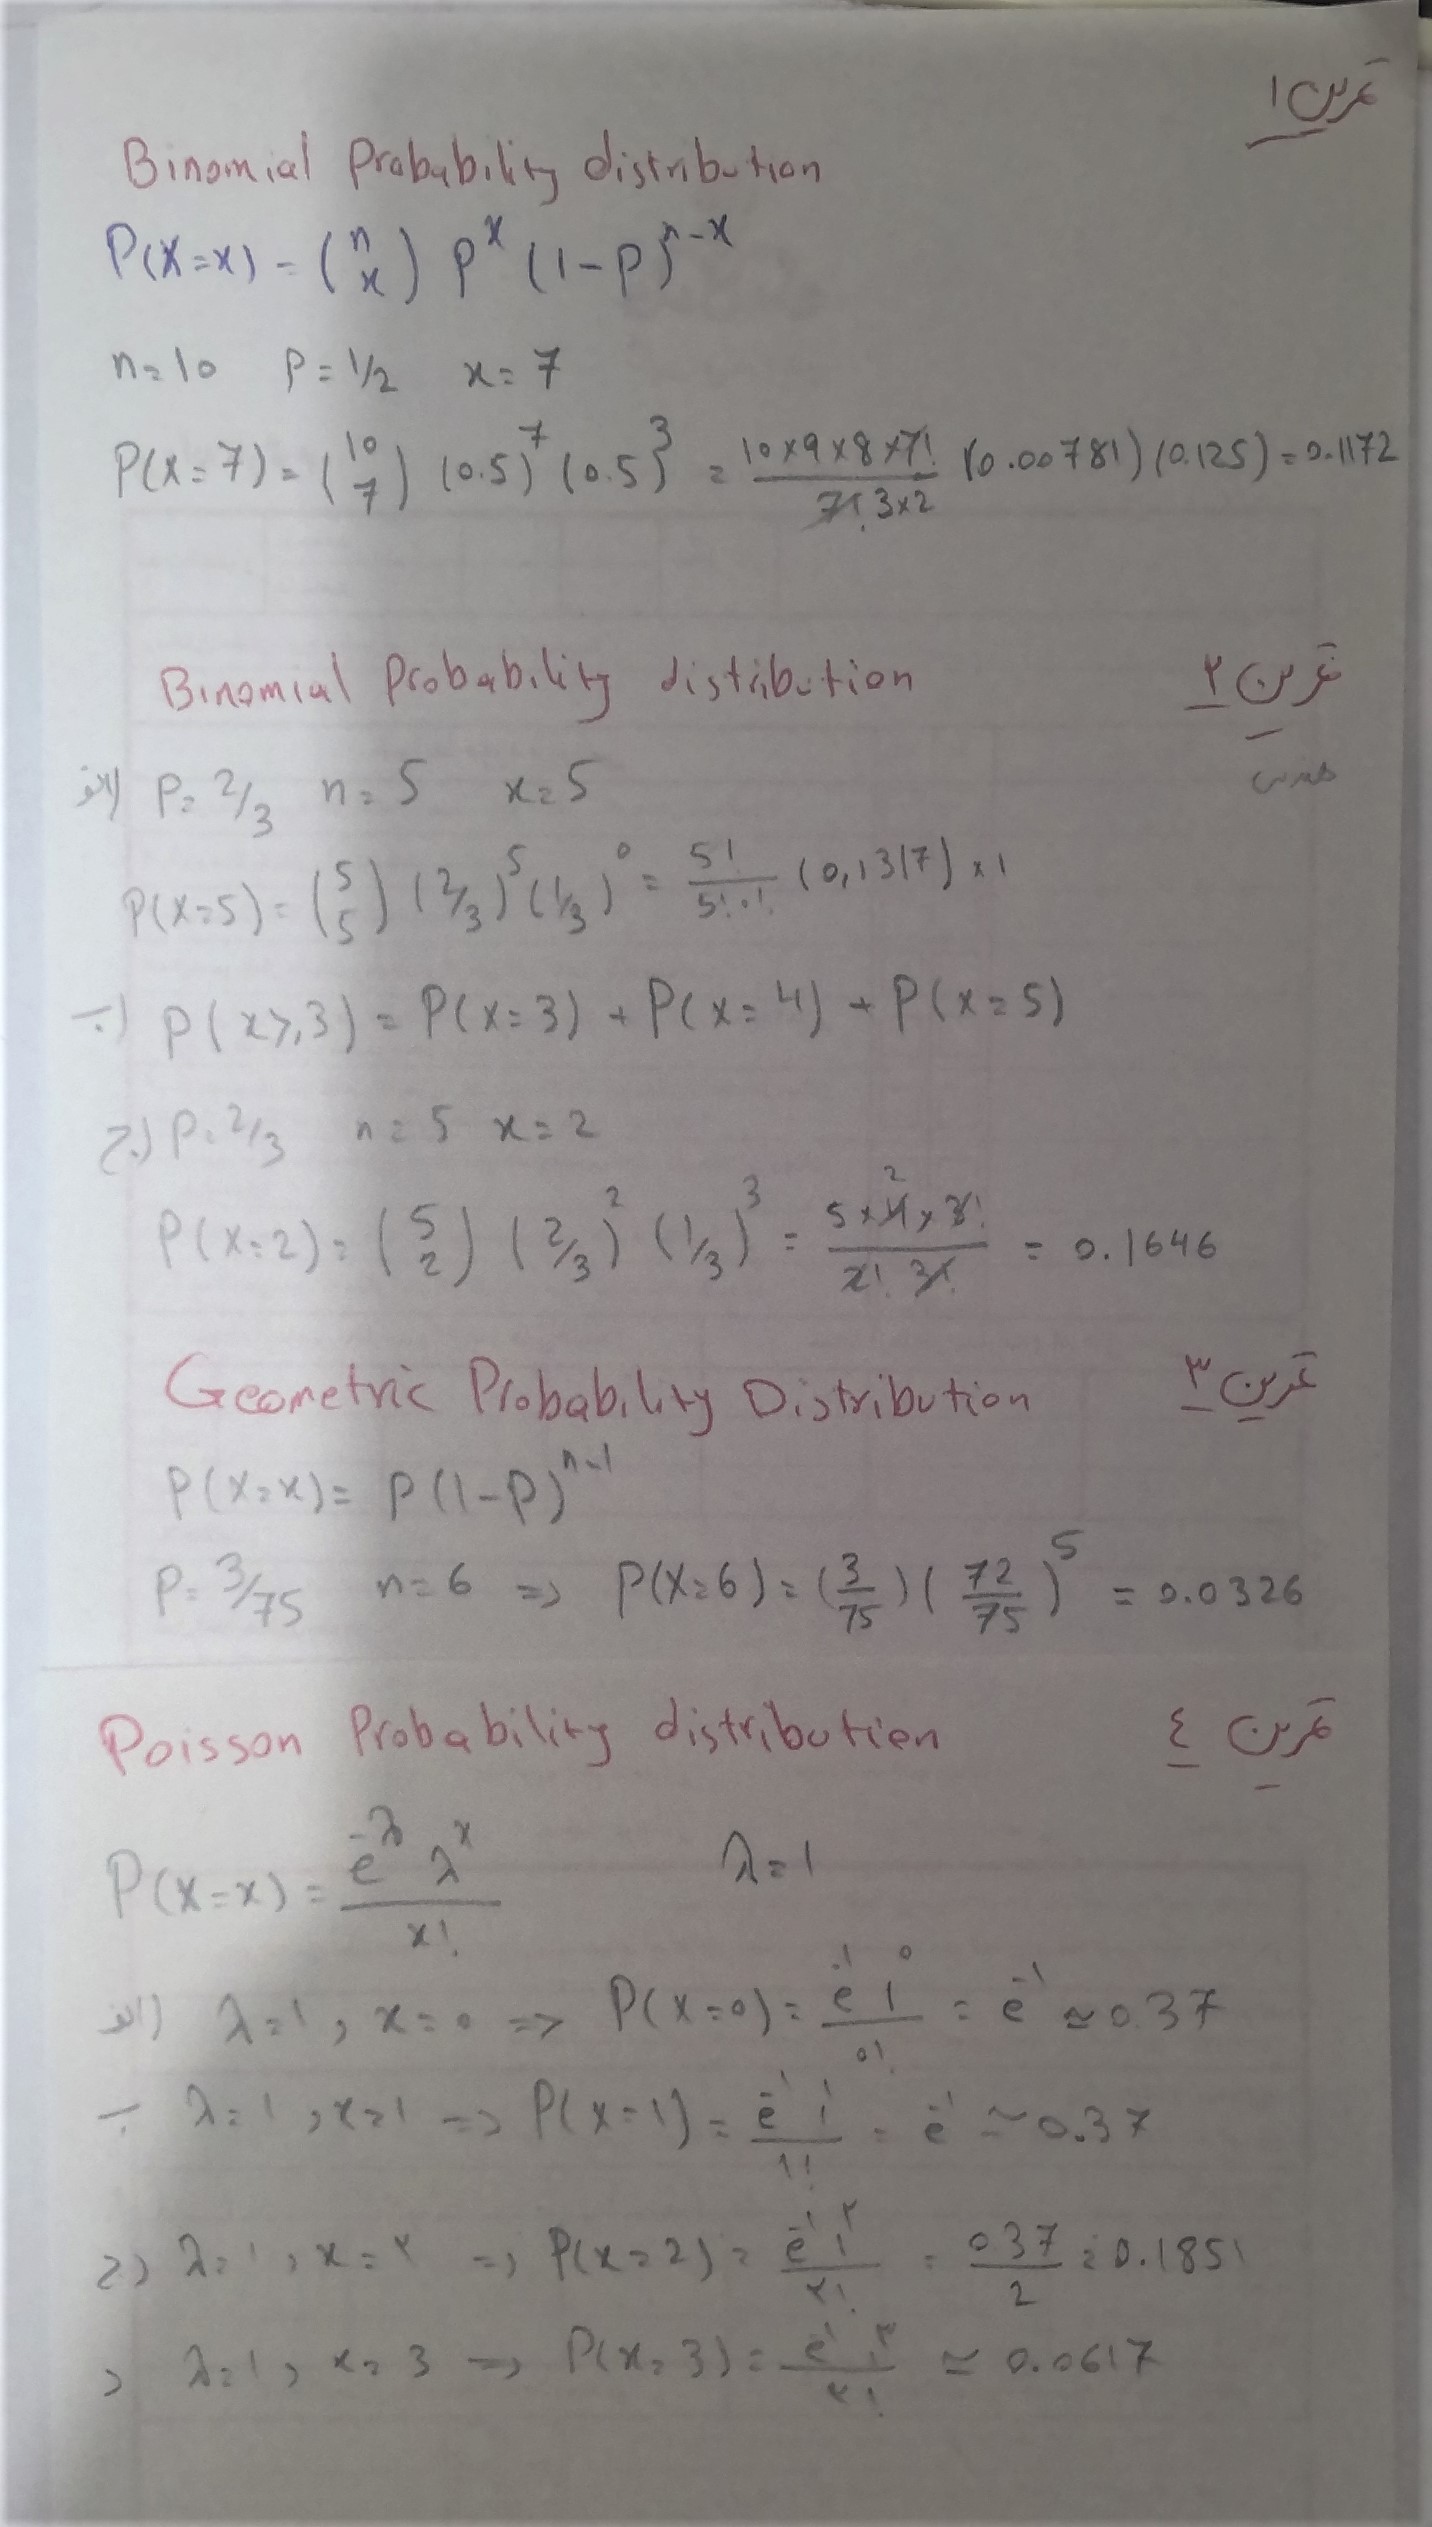 تمرین ۱
Binomial Probability distribution
P(X=x) = (n x) p^x (1-p)^n-x
n=10 P=1/2 x=7
P(X=7) = (10 7) (0.5)^7 (0.5)^3 = 10×9×8×7! / 7! 3×2 (0.00781) (0.125) = 0.1172
Binomial Probability distribution تمرین ۲
الف) P=2/3 n=5 x=5
P(X=5) = (5 5) (2/3)^5 (1/3)^0 = 5! / 5! 0! (0,1317) × 1
ب) P(x⩾3) = P(x=3) + P(x=4) + P(x=5)
ج) P=2/3 n=5 x=2
P(X=2) = (5 2) (2/3)^2 (1/3)^3 = 5×4×3! / 2! 3! = 0.1646
Geometric Probability Distribution تمرین ۳
P(X=x) = P(1-P)^n-1
P=3/75 n=6 => P(X=6) = (3/75) (72/75)^5 = 0.0326
Poisson Probability distribution تمرین ٤
P(X=x) = e^-λ λ^x / x! λ=1
الف) λ=1, x=0 => P(X=0) = e^-1 1^0 / 0! = e^-1 ≃ 0.37
ب λ=1, x=1 => P(X=1) = e^-1 1^1 / 1! = e^-1 ≃ 0.37
ج) λ=1, x=۲ => P(X=2) = e^-1 1^۲ / ۲! = 0.37 / 2 = 0.1851
د λ=1, x=3 => P(X=3) = e^-1 1^۳ / ۳! ≃ 0.0617